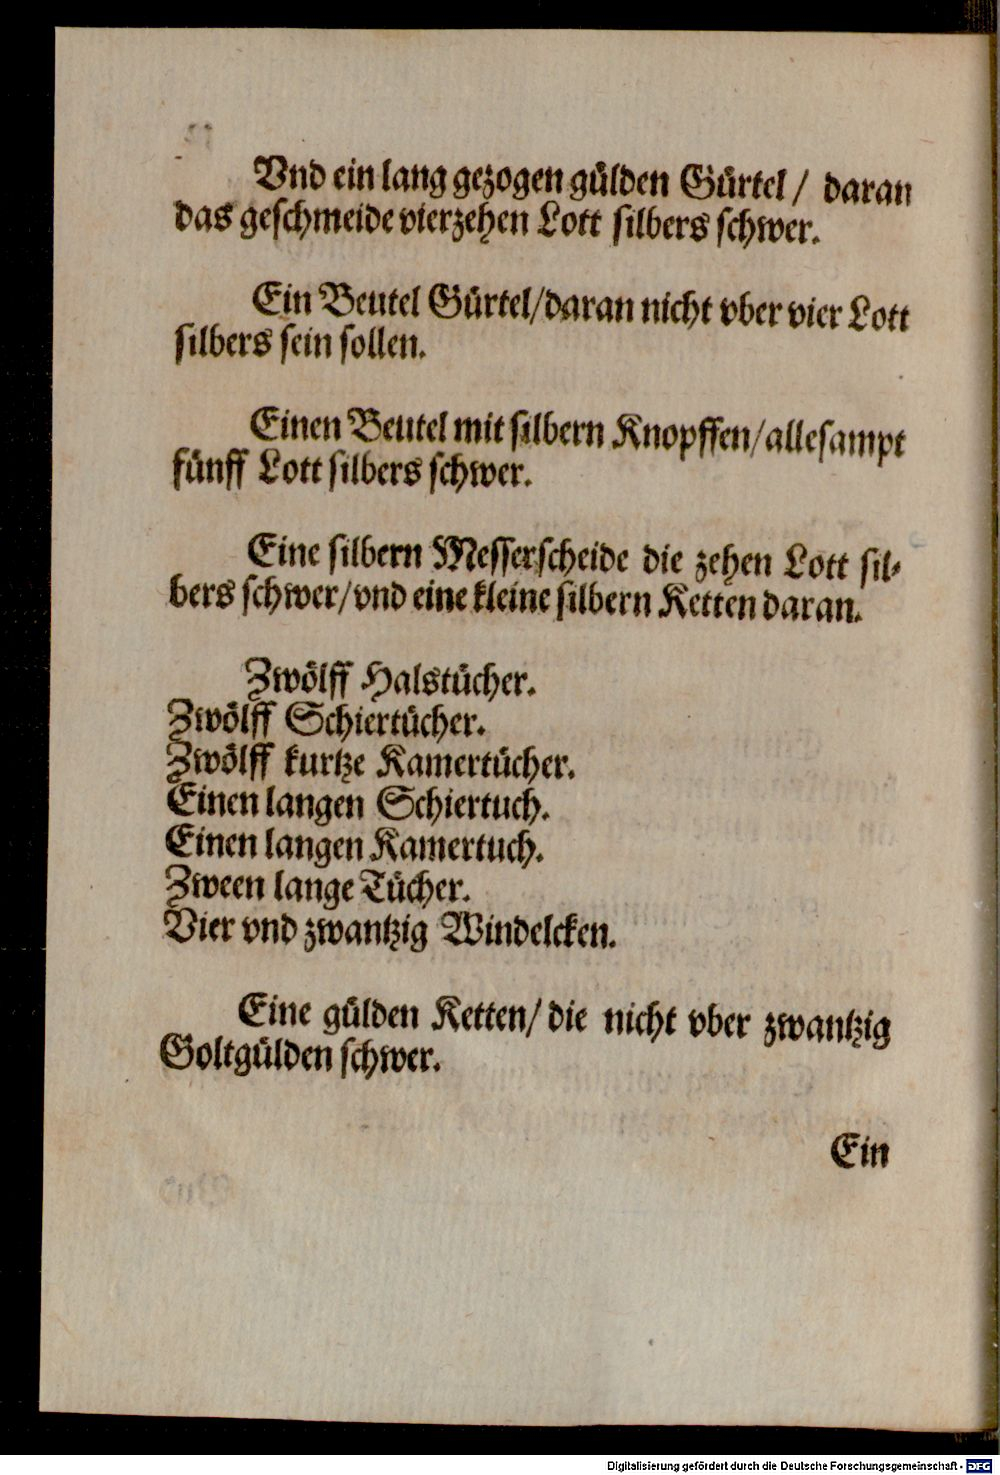 Vnd ein lang gezogen gülden Gürtel / daran
das geschmeide vierzehen Lott silbers schwer.
Ein Beutel Gürtel/daran nicht vber vier Lott
silbers sein sollen.
Einen Beutel mit silbern Knopffen/allesampt
fünff Lott silbers schwer.
Eine silbern Messerscheide die zehen Lott sil-
bers schwer/vnd eine kleine silbern Ketten daran.
Zwölff Halstücher.
Zwölff Schiertücher.
Zwölff kurtze Kamertücher.
Einen langen Schiertuch.
Einen langen Kamertuch.
Zween lange Tücher.
Vier vnd zwantzig Windelcken.
Eine gülden Ketten/ die nicht vber zwantzig
Goltgülden schwer.
Ein
Digitalisierung gefördert durch die Deutsche Forschungsgemeinschaft - DFG